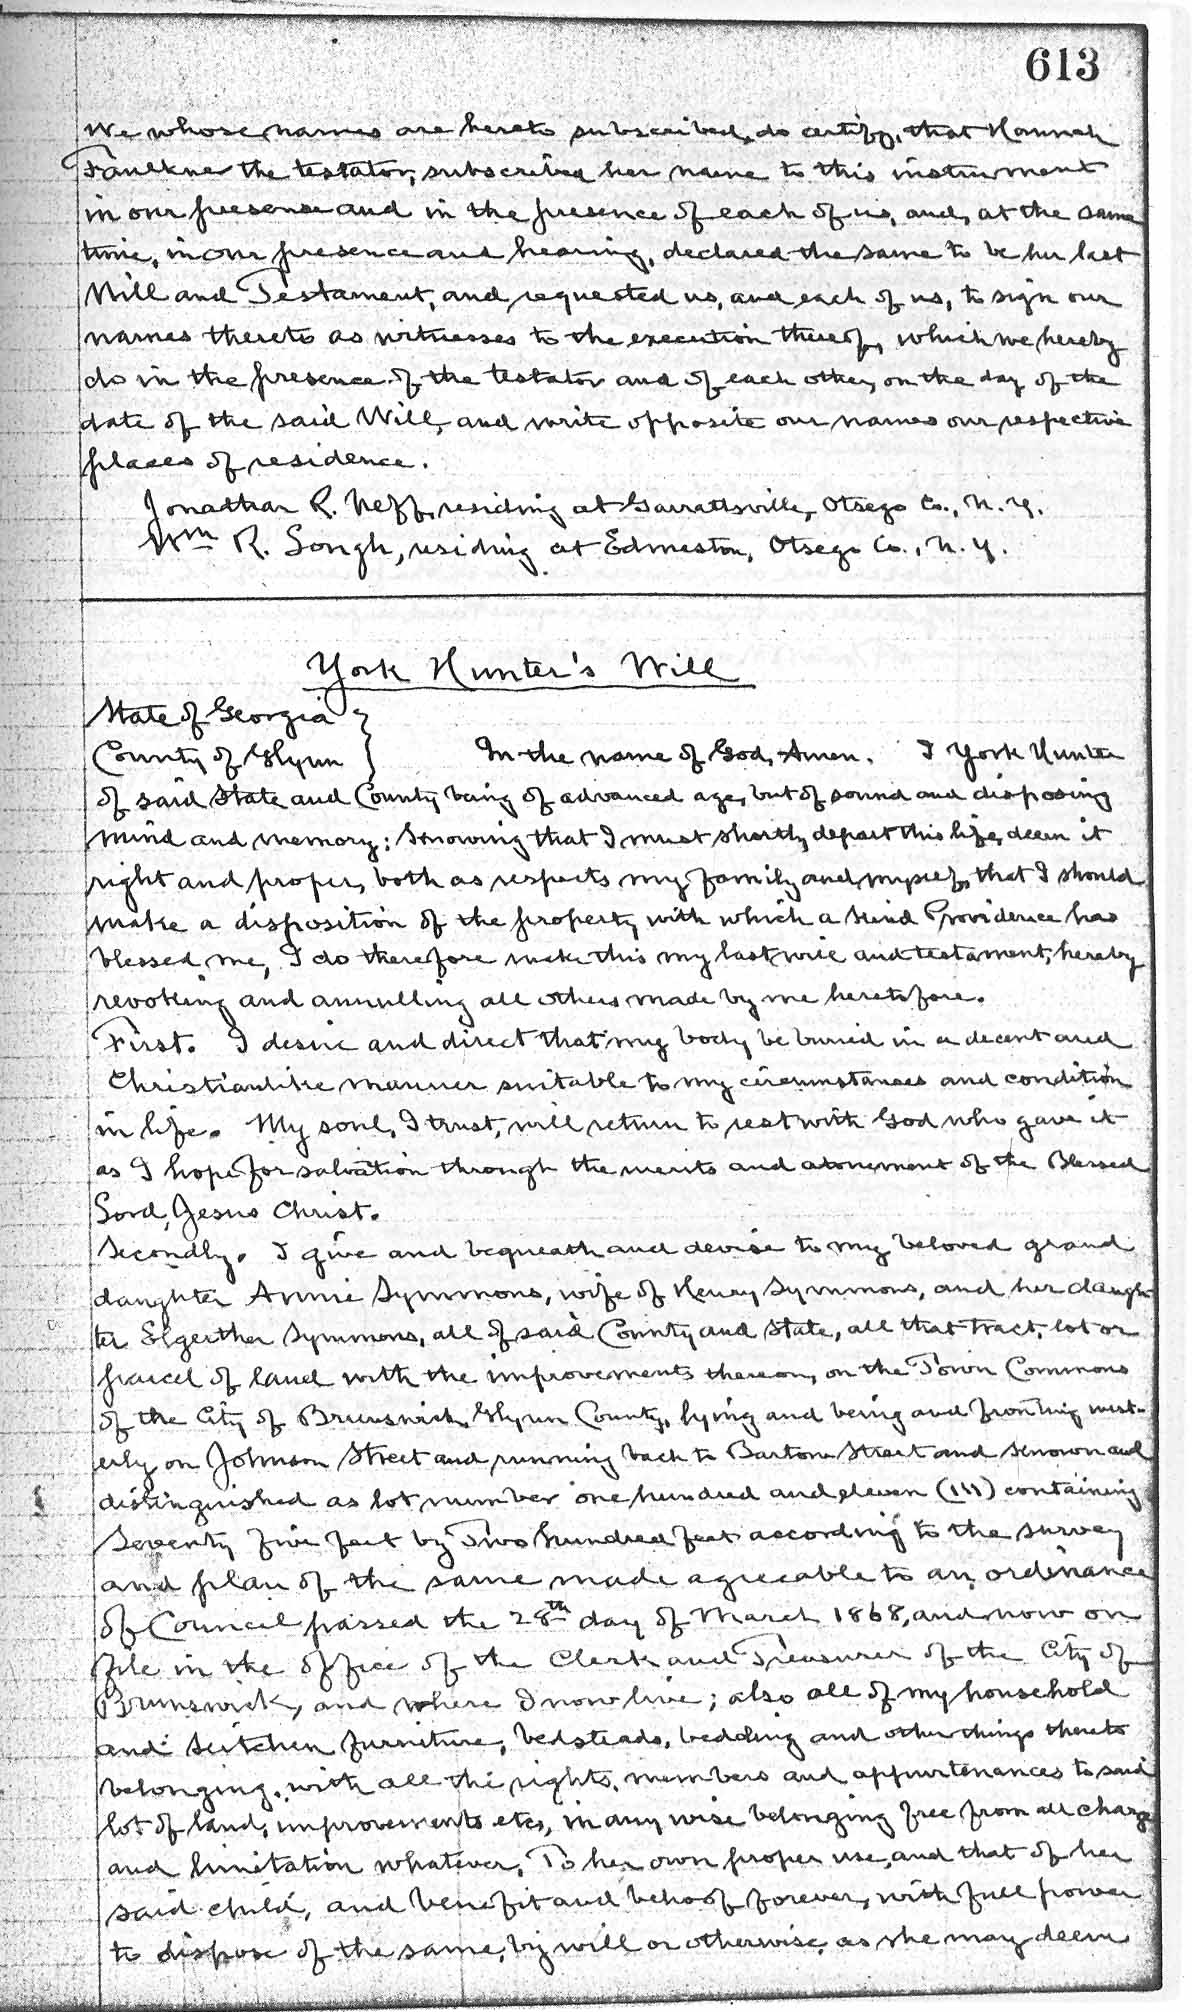 613
We whose names are hereto subscribed, do certify, that Hannah
Faulkner the testator, subscribed her name to this instrument
in our presence and in the presence of each of us, and, at the same
time, in our presence and hearing, declared the same to be her last
Will and Testament, and requested us, and each of us, to sign our
names thereto as witnesses to the execution thereof, which we hereby
do in the presence of the testator and of each other, on the day of the
date of the said Will, and write opposite our names our respective
places of residence.
Jonathan R. Neff, residing at Garrattsville, Otsego Co., N. Y.
Wm R. Lough, residing at Edmeston, Otsego Co., N. Y.
York Hunter's Will
State of Georgia }
County of Glynn } In the name of God, Amen. I York Hunter
of said State and County being of advanced age, but of sound and disposing
mind and memory; knowing that I must shortly depart this life, deem it
right and proper, both as respects my family and myself, that I should
make a disposition of the property with which a kind Providence has
blessed me, I do therefore make this my last will and testament, hereby
revoking and annulling all others made by me heretofore.
First. I desire and direct that my body be buried in a decent and
Christianlike manner suitable to my circumstances and condition
in life. My soul, I trust, will return to rest with God who gave it
as I hope for salvation through the merits and atonement of the Blessed
Lord, Jesus Christ.
Secondly. I give and bequeath and devise to my beloved grand
daughter Annie Symmons, wife of Henry Symmons, and her daugh-
ter Elgerther Symmons, all of said County and State, all that tract, lot or
parcel of land with the improvements thereon, on the Town Commons
of the City of Brunswick, Glynn County, lying and being and fronting west-
erly on Johnson Street and running back to Bartow Street and known and
distinguished as lot number one hundred and eleven (111) containing
Seventy five feet by Two hundred feet according to the survey
and plan of the same made agreeable to an ordinance
of Council passed the 28th day of March 1868, and now on
file in the office of the Clerk and Treasurer of the City of
Brunswick, and where I now live; also all of my household
and kitchen furniture, bedsteads, bedding and other things thereto
belonging, with all the rights, members and appurtenances to said
lot of land, improvements etc, in any wise belonging free from all charge
and limitation whatever, To her own proper use, and that of her
said child, and benefit and behoof forever, with full power
to dispose of the same, by will or otherwise, as she may deem